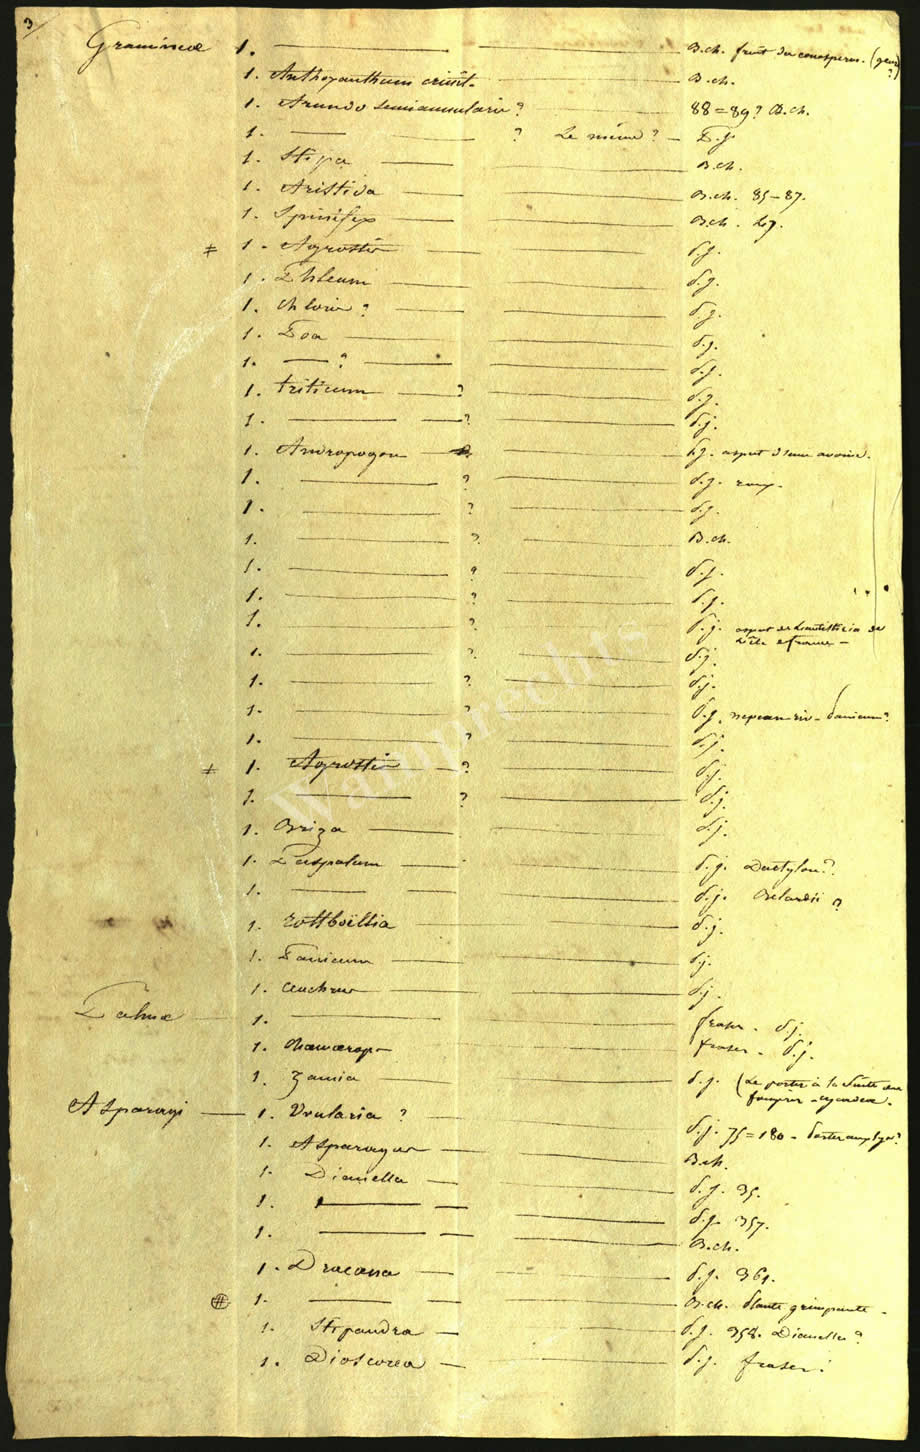 3
Gramineae 1. B.ch. fruit du (genre ?)
1. Anthoxanthum crinit. B.ch.
1. Arundo semiannularis? 88=89? B.ch.
1. ? Le même? P.j.
1. Stipa B.ch.
1. Aristida B.ch. 85-87.
1. Spinifex B.ch.
1. Agrostis P.j.
1. Phleum P.j.
1. Chloris? P.j.
1. Poa P.j.
1. ? P.j.
1. triticum ? P.j.
1. ? P.j.
1. Andropogon P.j. aspect d'une avoine.
1. ? P.j. roux.
1. ? P.j.
1. ? B.ch.
1. ? P.j.
1. ? P.j.
1. ? P.j. aspect de l'antistiria de
l'ile de france -
1. ? P.j.
1. ? P.j.
1. ? P.j. nepean riv - Panicum?
1. ? P.j.
1. Agrostis ? P.j.
1. ? P.j.
1. Briza P.j.
1. Paspalum P.j. Dactylon?
1. P.j. ?
1. rottboëllia P.j.
1. Panicum P.j.
1. Cenchrus P.j.
Palmae 1. fraser. P.j.
1. Chamaerops fraser. P.j.
1. Zamia P.j. (Le porter à la suite des
fougères - cycadeae.
Asparagi 1. Uvularia ? P.j. 75=180 -
1. Asparagus B.ch.
1. Dianella P.j. 35.
1. P.j. 357.
1. B.ch.
1. Dracaena P.j. 361.
1. B.ch. Plante grimpante -
1. Stypandra P.j. 358. Dianella?
1. Dioscorea P.j. fraser.
Wamprechts